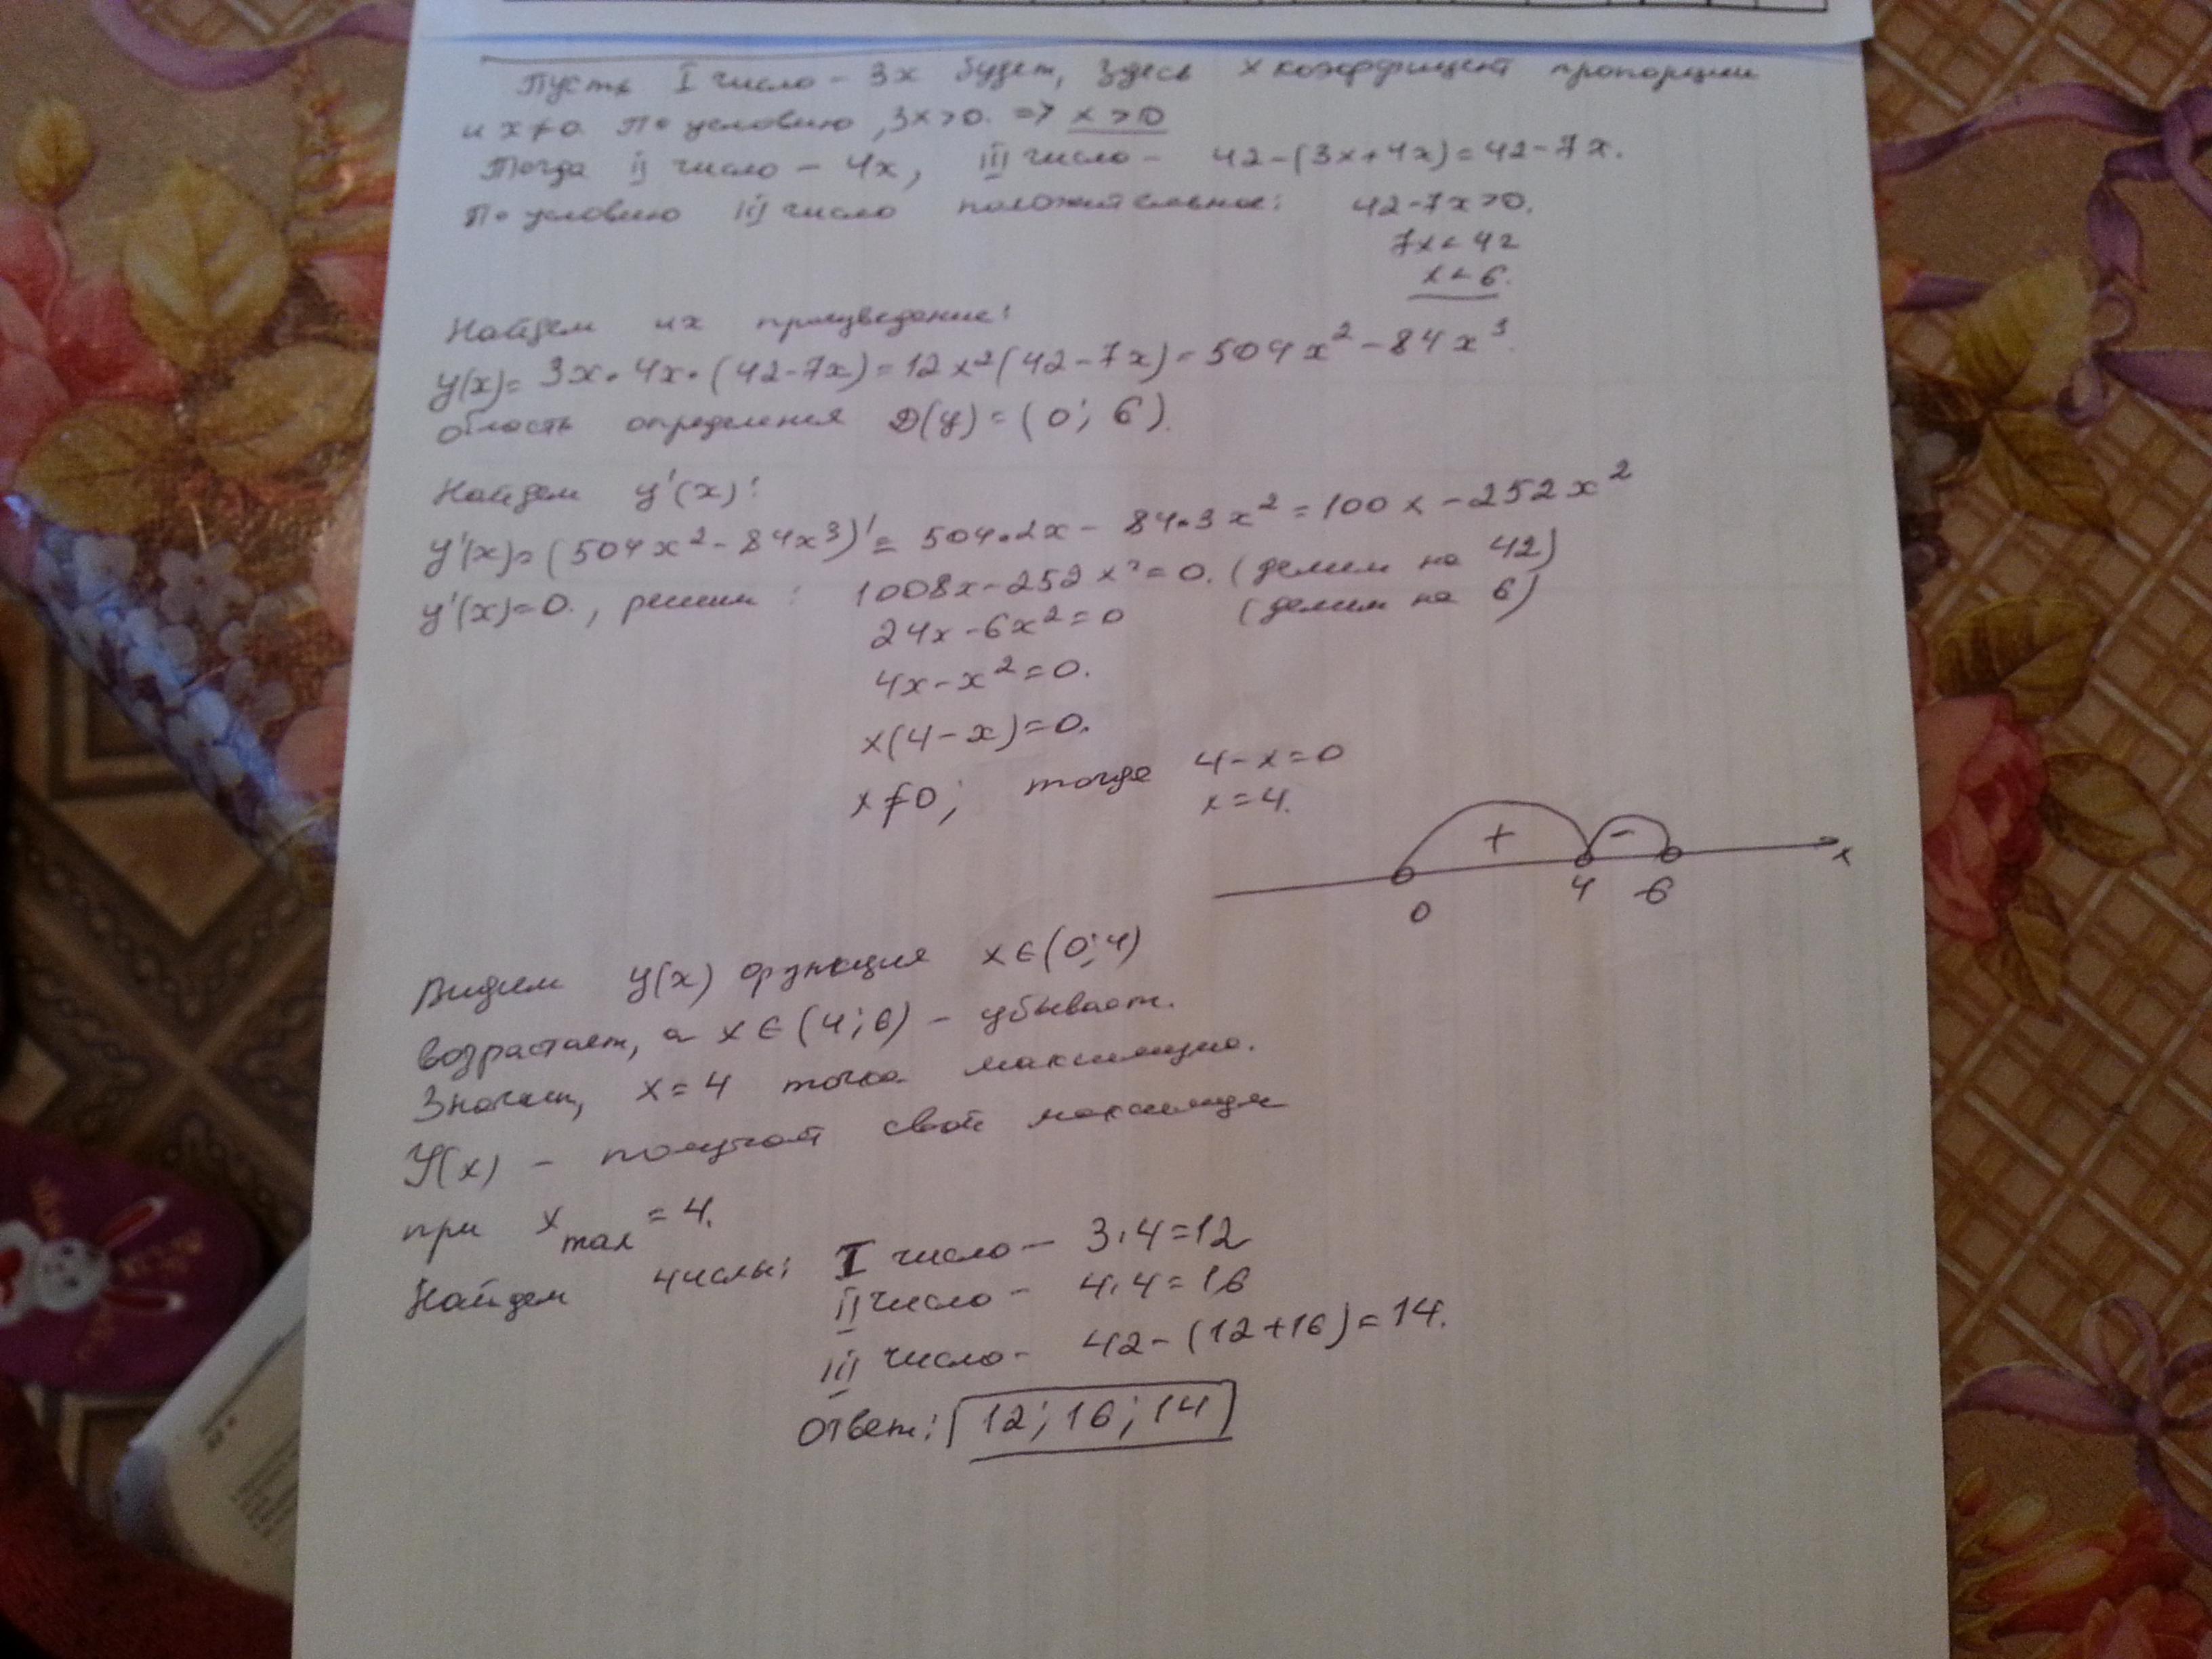 Пусть I число - 3x будет, здесь x коэффициент пропорции
и x≠0. По условию, 3x>0. => x>0
Тогда II число - 4x, III число - 42-(3x+4x)=42-7x.
По условию III число положительное: 42-7x>0.
7x<42
x<6.
Найдем их произведение:
y(x)= 3x·4x·(42-7x)=12x²(42-7x)=504x²-84x³.
область определения D(y)=(0; 6).
Найдем y'(x):
y'(x)=(504x²-84x³)'=504·2x-84·3x²=100x-252x²
y'(x)=0., решим: 1008x-252x²=0. (делим на 42)
24x-6x²=0 (делим на 6)
4x-x²=0.
x(4-x)=0.
x≠0; тогда 4-x=0
x=4.
+ -
0 4 6 x
Видим y(x) функция x∈(0;4)
возрастает, а x∈(4;6) - убывает.
Значит, x=4 точка максимума.
y(x) - получает свой максимум
при xmax=4.
Найдем числы: I число - 3·4=12
II число - 4·4=16
III число - 42-(12+16)=14.
Ответ: 12; 16; 14